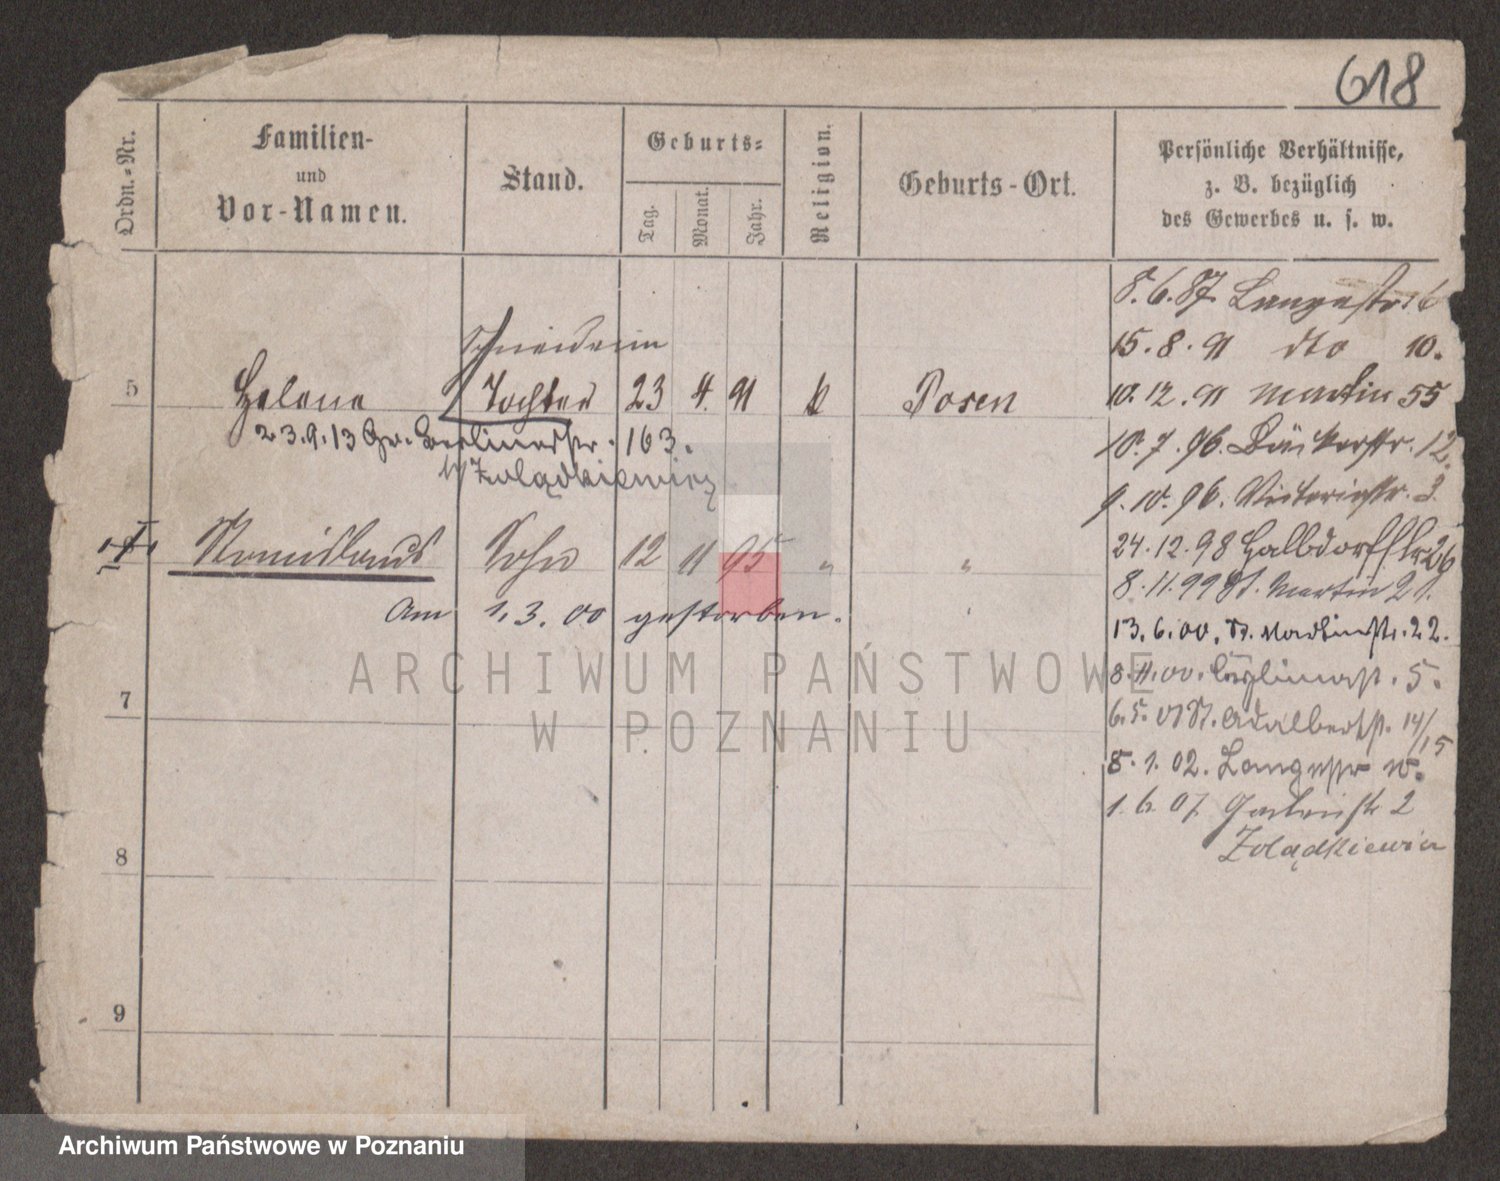 618
Ordn.-Nr.
Familien-
und
Vor-Namen.
Stand.
Geburts-
Tag.
Monat.
Jahr.
Religion.
Geburts-Ort.
Persönliche Verhältnisse,
z. B. bezüglich
des Gewerbes u. s. w.
8.6.87 Langestr 16
15.8.91 dto 10.
Schneiderin
5 Helene Tochter 23 4. 91 k Posen
10.12.91 Martin 55
23.9.13 Gr. Berlinerstr. 163.
10.7.96. Bäckerstr. 12.
Żolądkiewicz
9.10.96. Victoriastr. 3
Sohn 12 11 95 " "
24.12.98 Halbdorffstr 26
8.11.99 St. Martin 21.
Am 1.3.00 gestorben.
13.6.00. St. Martinstr. 22.
8.11.00. 5.
7
6.5.01 St. Adalbertst. 14/15
8.1.02. Langestr 10.
1.6.07 Gartenstr 2
Żolądkiewicz
8
9
ARCHIWUM PAŃSTWOWE
W POZNANIU
Archiwum Państwowe w Poznaniu